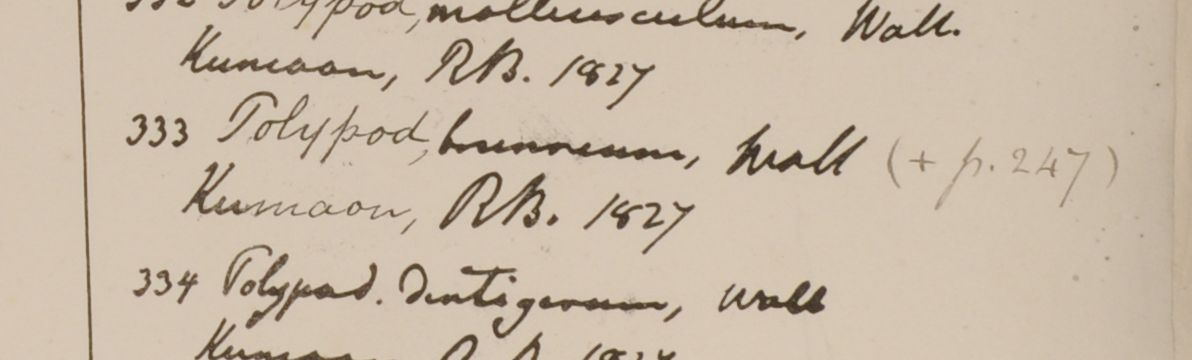 332 Polypod, molliusculum, Wall.
Kumaon, RB. 1827
333 Polypod, brunneum, Wall (+ p. 247)
Kumaon, RB. 1827
334 Polypod. dentigerum, Wall
Kumaon R. B. 1827